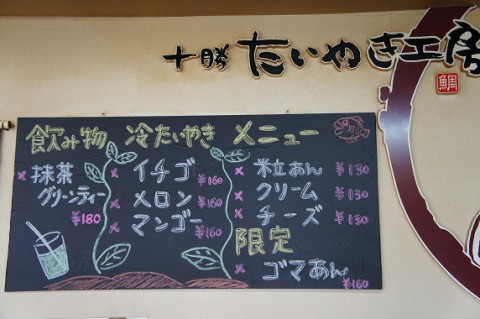 十勝 たいやき工房
鯛
飲み物 冷たいやき メニュー
× 抹茶
グリーンティー
¥180
× イチゴ ¥160
× メロン ¥160
× マンゴー ¥160
× 粒あん ¥130
× クリーム ¥130
× チーズ ¥130
限定
× ゴマあん
¥160